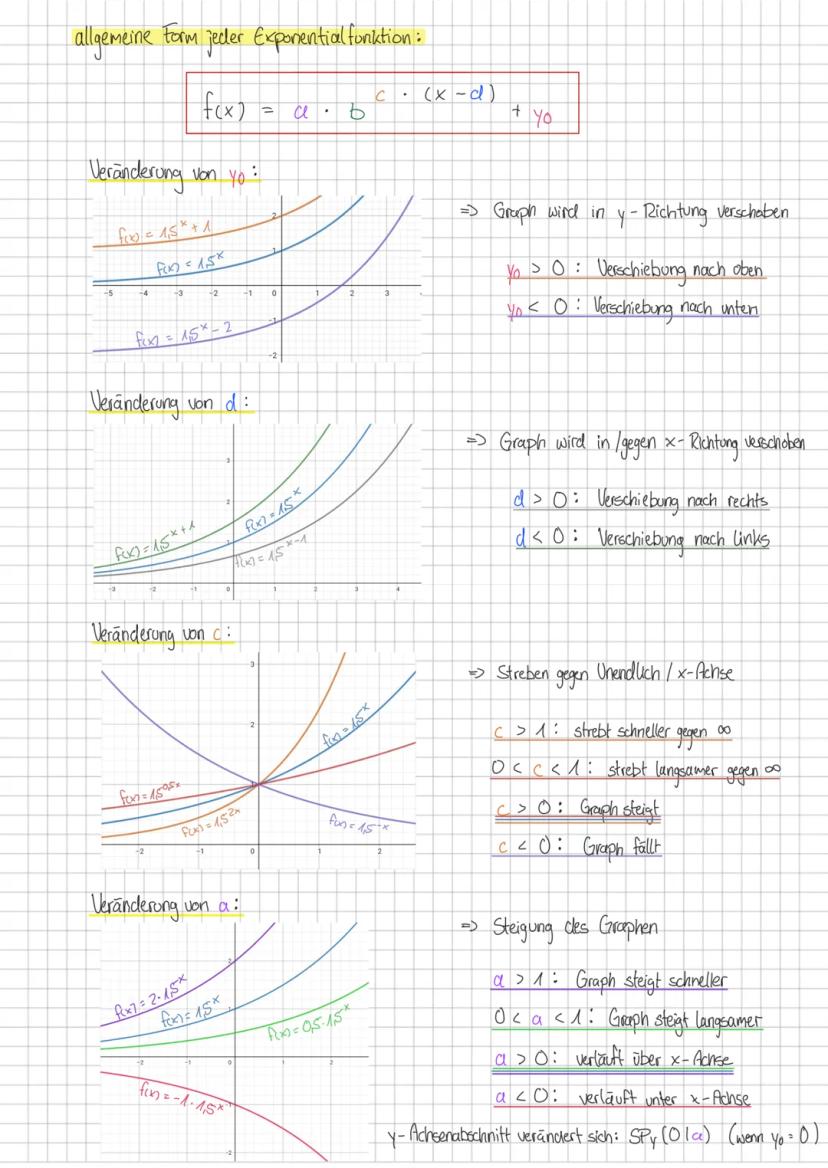 allgemeine Form jeder Exponentialfunktion:
f(x) = a · b^c · (x - d) + y0
Veränderung von y0:
=> Graph wird in y-Richtung verschoben
f(x) = 1,5^x + 1
f(x) = 1,5^x
f(x) = 1,5^x - 2
-5 -4 -3 -2 -1 0 1 2 3
2
1
-1
-2
y0 > 0: Verschiebung nach oben
y0 < 0: Verschiebung nach unten
Veränderung von d:
=> Graph wird in/gegen x-Richtung verschoben
f(x) = 1,5^x+1
f(x) = 1,5^x
f(x) = 1,5^x-1
-3 -2 -1 0 1 2 3 4
3
2
1
d > 0: Verschiebung nach rechts
d < 0: Verschiebung nach links
Veränderung von c:
=> Streben gegen Unendlich / x-Achse
f(x) = 1,5^x
f(x) = 1,5^0,5x
f(x) = 1,5^2x
f(x) = 1,5^-x
-2 -1 0 1 2
3
2
1
c > 1: strebt schneller gegen ∞
0 < c < 1: strebt langsamer gegen ∞
c > 0: Graph steigt
c < 0: Graph fällt
Veränderung von a:
=> Steigung des Graphen
f(x) = 2·1,5^x
f(x) = 1,5^x
f(x) = 0,5·1,5^x
f(x) = -1·1,5^x
-2 -1 0 1 2
2
1
-1
-2
a > 1: Graph steigt schneller
0 < a < 1: Graph steigt langsamer
a > 0: verläuft über x-Achse
a < 0: verläuft unter x-Achse
y-Achsenabschnitt verändert sich: SPy (0|a) (wenn y0 = 0)